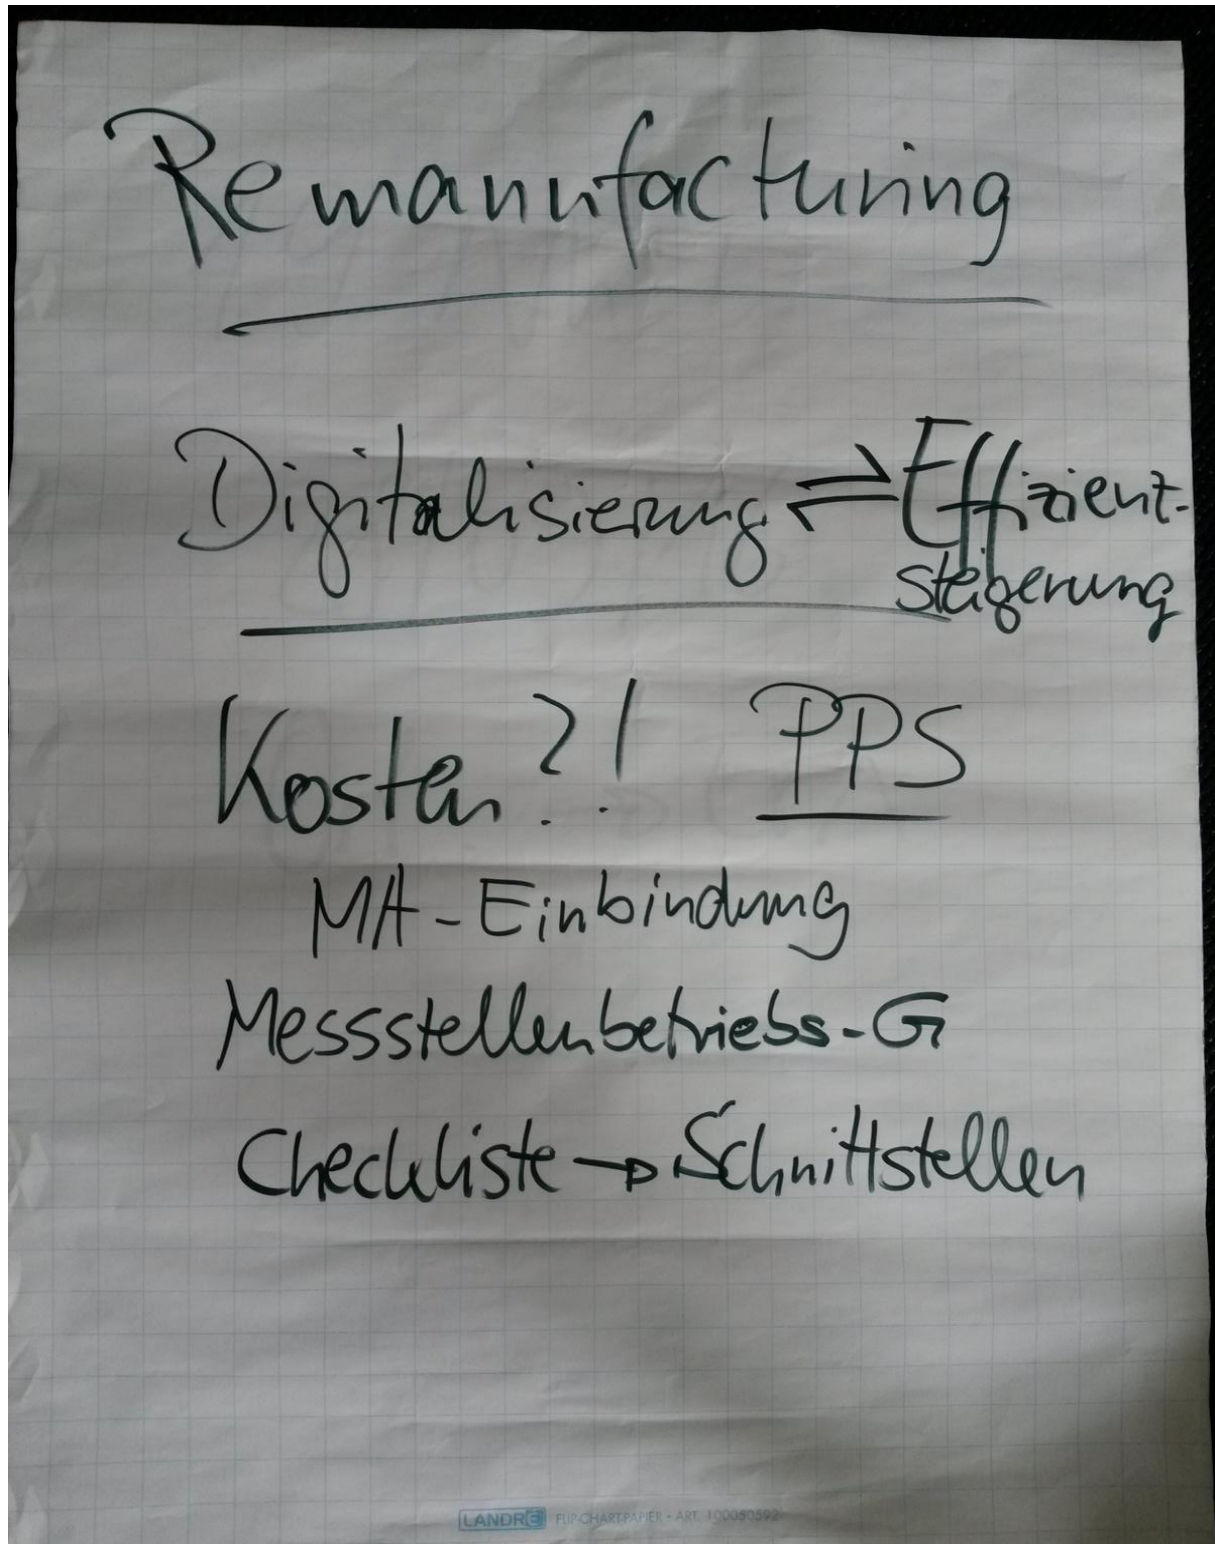 Remanufacturing
Digitalisierung ⇌ Effizient-
steigerung
Kosten?! PPS
MA-Einbindung
Messstellenbetriebs-G
Checkliste → Schnittstellen
LANDRÉ FLIP-CHART-PAPIER • ART. 100050592